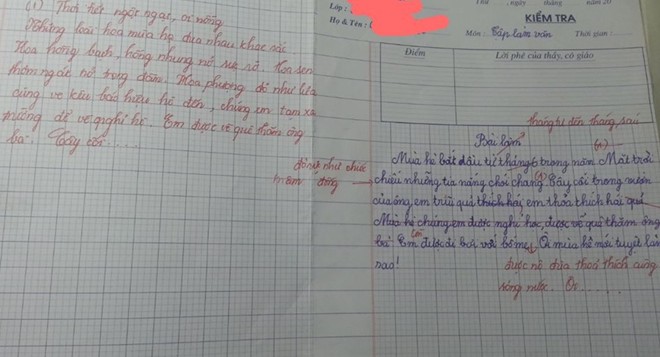 (1) Thời tiết ngột ngạt, oi nồng
Những loài hoa mùa hạ đua nhau khoe sắc
Hoa hồng bạch, hồng nhung nở rực rỡ. Hoa sen
thơm ngát nở trong đầm. Hoa phượng đỏ như lửa
cùng ve kêu báo hiệu hè đến, chúng em tạm xa
trường để về nghỉ hè. Em được về quê thăm ông
bà. Cây cối.....
Lớp :
Họ & Tên :
Thứ ngày tháng năm 20
KIỂM TRA
Môn : Tập làm văn Thời gian :
Điểm Lời phê của thầy, cô giáo
tháng tư đến tháng sáu
Bài làm
(1)
Mùa hè bắt đầu từ tháng 6 trong năm. Mặt trời
đỏ rực như chiếc
mâm đồng
chiếu những tia nắng chói chang. Cây cối trong vườn
của ông em trĩu quả thích hái, em thỏa thích hái quả.
Mùa hè chúng em được nghỉ học, được về quê thăm ông
bà. Em được đi bơi với bố mẹ. Ôi mùa hè mới tuyệt làm
nao!
được nô đùa thỏa thích cùng
sóng nước. Ôi.....